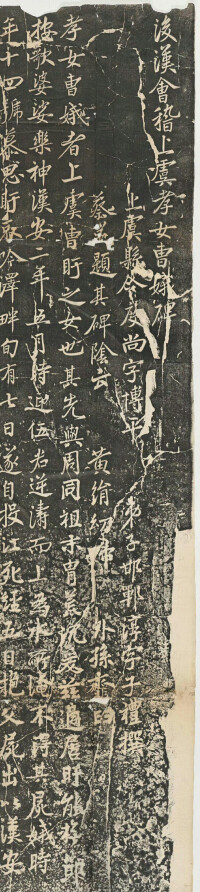 後漢會稽上虞孝女曹娥碑
上虞縣令度尚字博平 弟子邯鄲淳字子禮撰
蔡邕題其碑陰云 黃絹幼婦 外孫齏臼
孝女曹娥者上虞曹盱之女也其先與周同祖末胄荒沈爰茲適居盱能撫節
按歌婆娑樂神漢安二年五月時迎伍君逆濤而上為水所淹不得其屍娥時
年十四號慕思盱哀吟澤畔旬有七日遂自投江死經五日抱父屍出以漢安